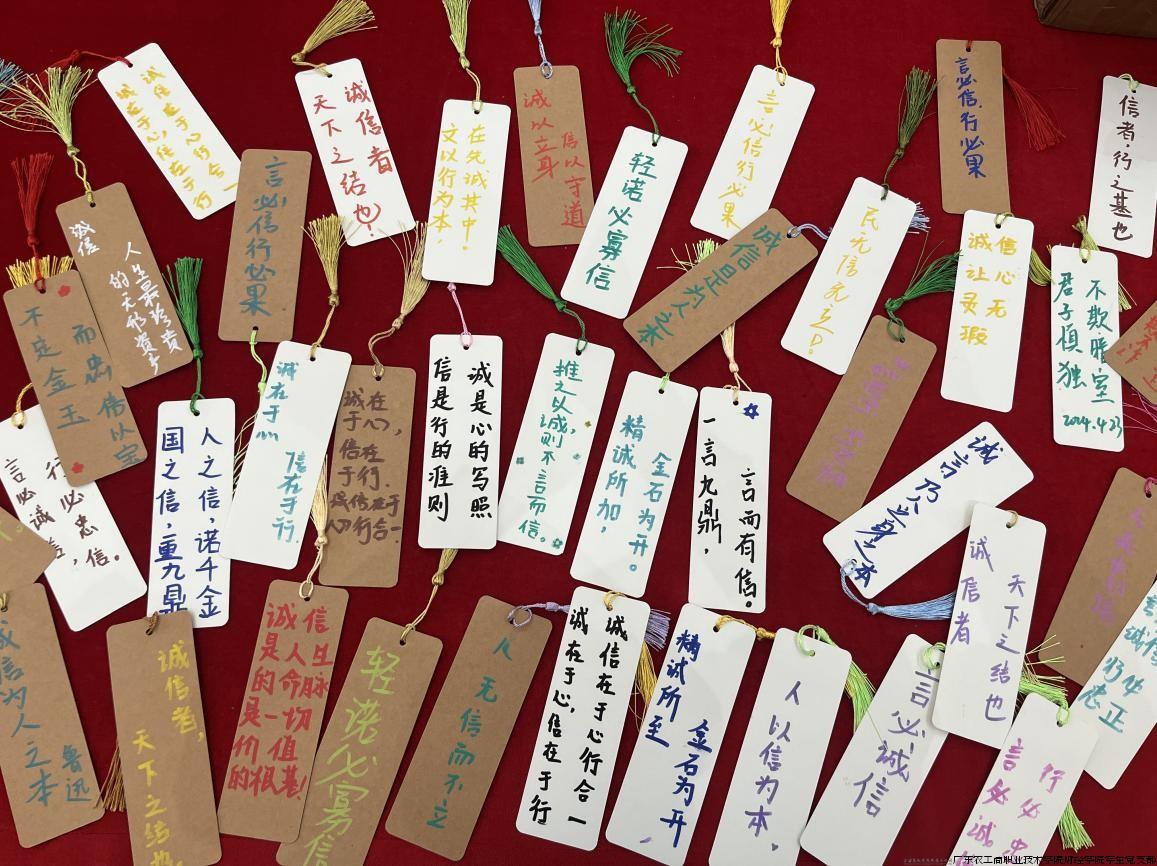 诚信在于心行合一
诚在于心,信在于行
诚信者
天下之结也
在先诚其中!
文以行为本,
诚以立身
信以守道
轻诺必寡信
言必信行必果
言必信.行必果
信者,行之基也
诚信
人生最珍贵
的无形资产
言必信行必果
诚信是为人之本
民无信无立
诚信心无
让灵瑕
不欺暗室
君子慎独
2024.4.23
不定金玉
而忠信以宝
言必诚信,
行必忠信。
人之信,诺千金
国之信,重九鼎
诚在于心
信在于行.
诚在于心,
信在于行.
诚信在于
人心行合一
诚是心的写照
信是行的准则
推之以诚,则不言而信。
精诚所加,
金石为开。
一言九鼎,
言而有信。
诚信者
天下之结也
诚信为人之本
鲁迅
诚信者,
天下之结也
诚信是人生
的命脉
是一切
价值
的根基!
轻诺必寡信
人无信而不立
诚信在于心行合一
诚在于心,信在于行
精诚所至
金石为开
人以信为本
言必诚信
言必诚
行必忠
广东农工商职业技术学院财经学院学生党支部